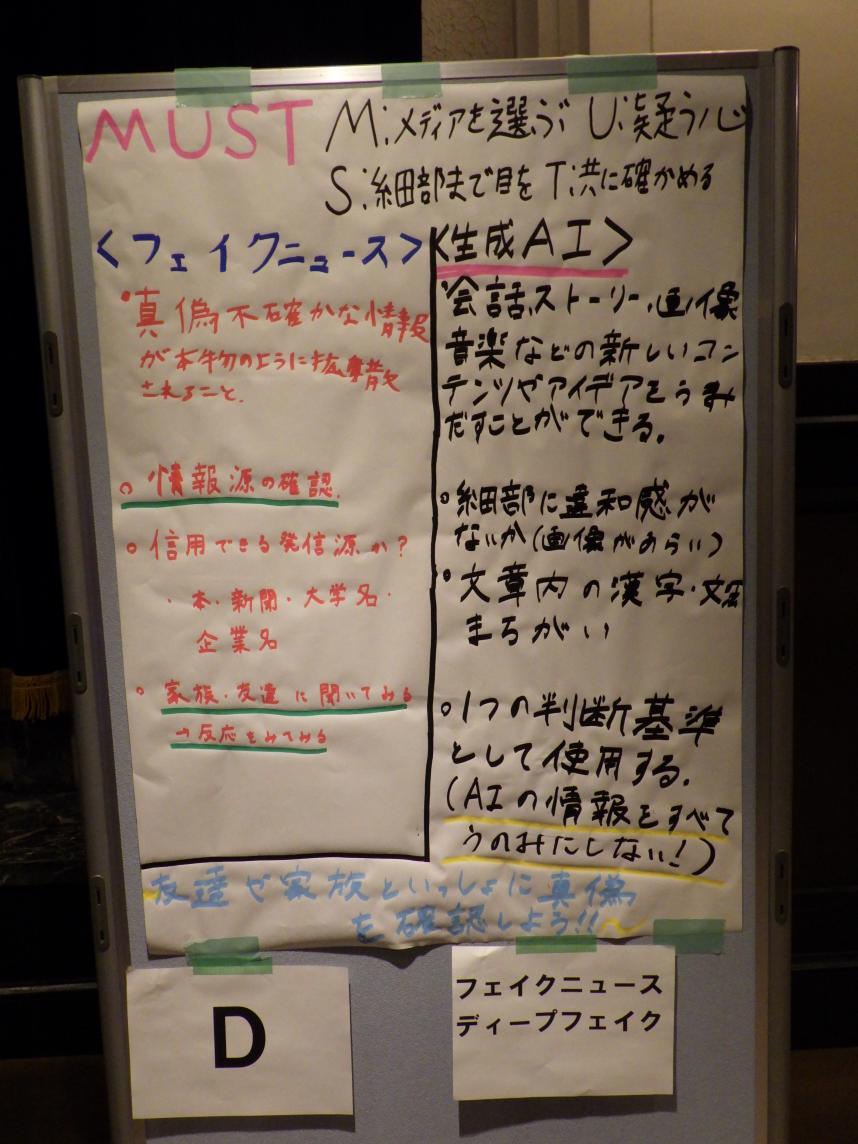 MUST M:メディアを選ぶ U:疑う心
S:細部まで目を T:共に確かめる
<フェイクニュース>
・真偽不確かな情報
が本物のように拡散
されること.
○情報源の確認.
○信用できる発信源か?
・本・新聞・大学名・
企業名
○家族・友達に聞いてみる
→反応をみてみる
<生成AI>
・会話、ストーリー、画像
音楽などの新しいコン
テンツやアイデアをうみ
だすことができる.
○細部に違和感が
ないか(画像があらい)
・文章内の漢字・
まちがい
○1つの判断基準
として使用する.
(AIの情報をすべて
うのみにしない!)
友達や家族といっしょに真偽
を確認しよう!!~
D
フェイクニュース
ディープフェイク